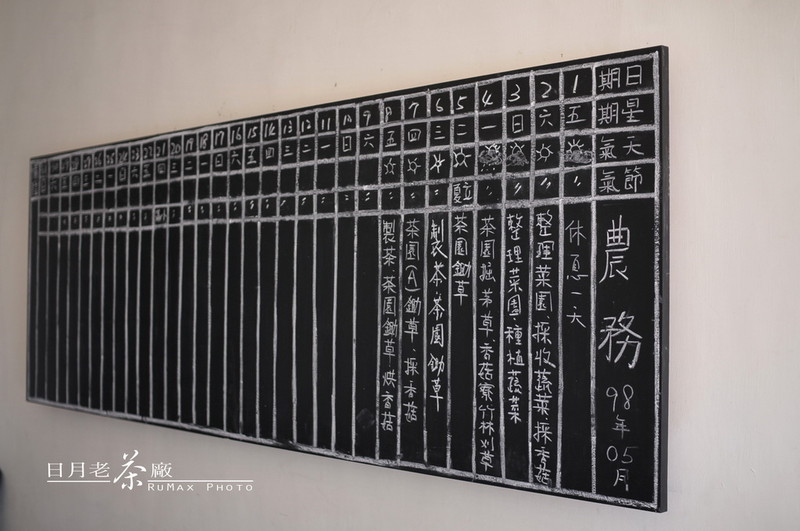 日期 1 2 3 4 5 6 7 8 9 10 11 12 13 14 15 16 17 18 19 20 21 22 23 24 25
星期 五 六 日 一 二 三 四 五 六 日 一 二 三 四 五 六 日 一 二 三 四 五 六 日 一
天氣
節氣 〃 〃 〃 〃 立夏 〃 〃 〃
農務
98年05月
休息一天
整理菜園、採收蔬菜、採香菇
整理菜園、種植蔬菜
茶園掘茅草、香菇寮竹林刈草
茶園鋤草
製茶、茶園鋤草
茶園(A)鋤草、採香菇
製茶、茶園鋤草、烘香菇
日月老茶廠
RUMAX PHOTO